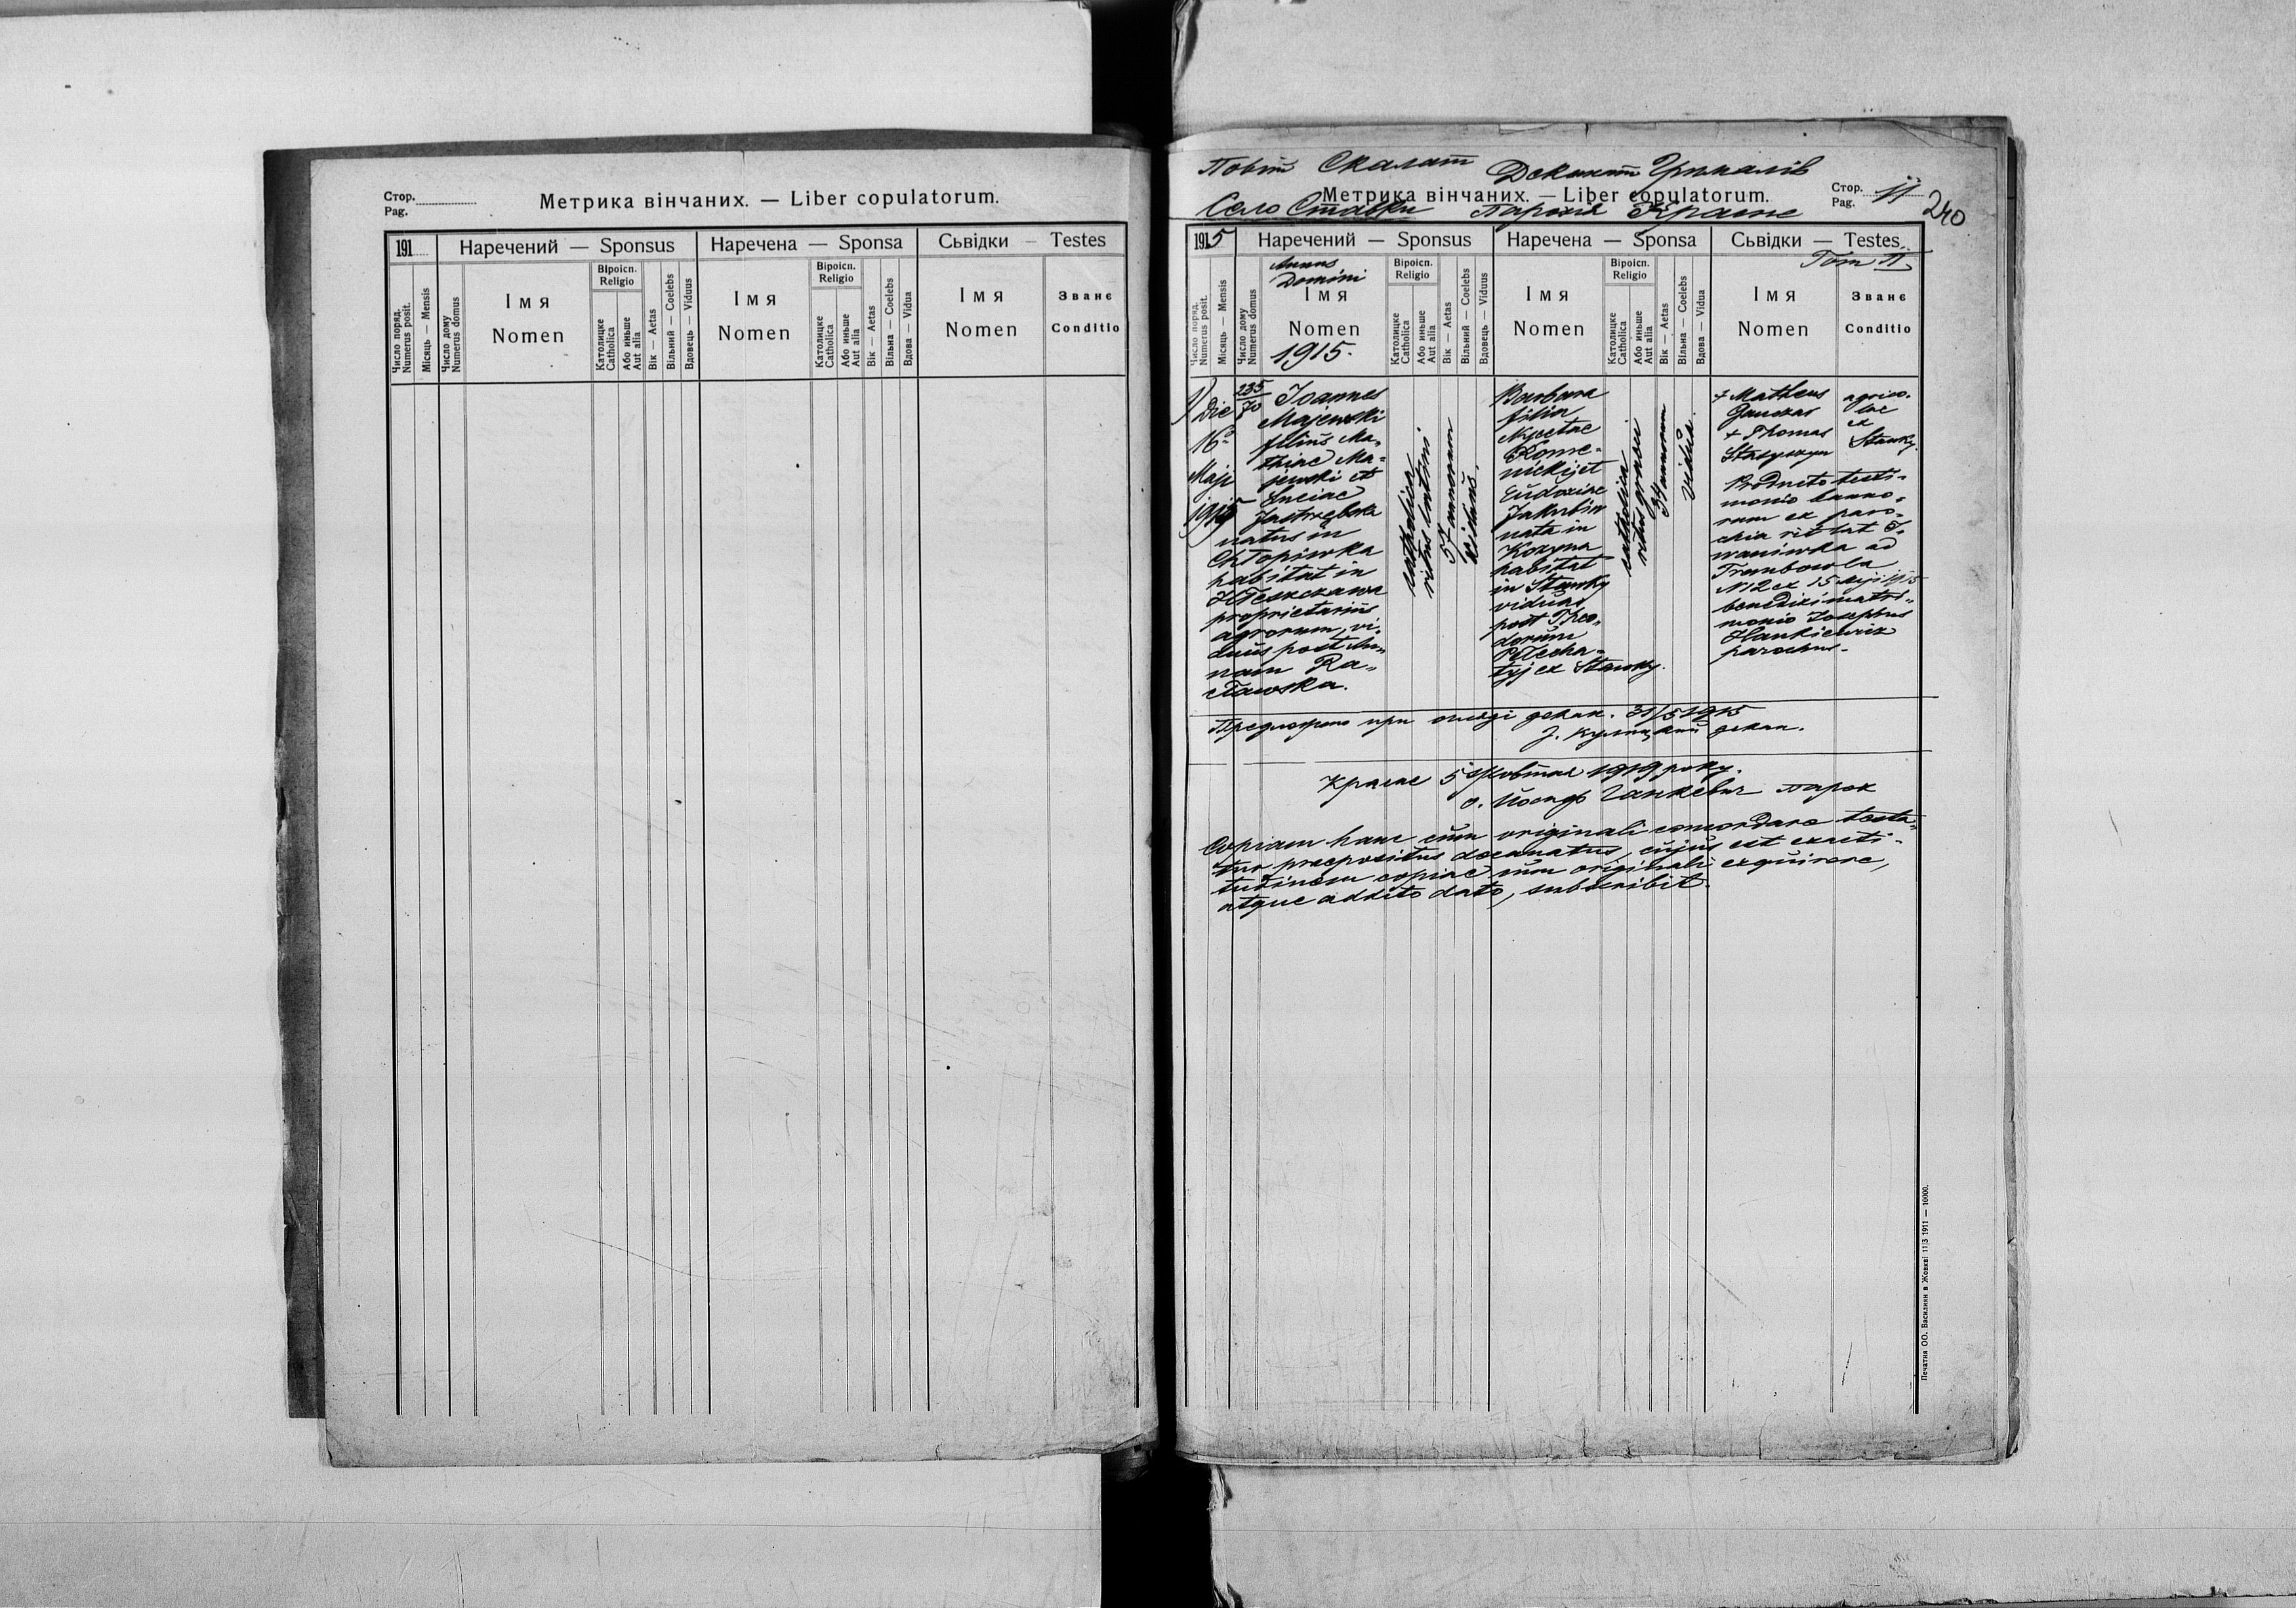 Стор.
Pag.
Метрика вінчаних. — Liber copulatorum.
191
Наречений — Sponsus
Наречена — Sponsa
Сьвідки — Testes
Число поряд.
Numerus posit.
Місяць — Mensis
Число дому
Numerus domus
Імя
Nomen
Віроісп.
Religio
Католицке
Catholica
Або иньше
Aut alia
Вік — Aetas
Вільний — Coelebs
Вдовець — Viduus
Імя
Nomen
Віроісп.
Religio
Католицке
Catholica
Або иньше
Aut alia
Вік — Aetas
Вільна — Coelebs
Вдова — Vidua
Імя
Nomen
Званє
Conditio
Повіт Скалат Деканат Грималів
Метрика вінчаних. — Liber copulatorum.
Стор.
Pag. 11
240
Село Ставки Парохія Красне
1915
Наречений — Sponsus
Наречена — Sponsa
Сьвідки — Testes
Том II
Число поряд.
Numerus posit.
Місяць — Mensis
Число дому
Numerus domus
Annus
Domini
Імя
Nomen
1915.
Віроісп.
Religio
Католицке
Catholica
Або иньше
Aut alia
Вік — Aetas
Вільний — Coelebs
Вдовець — Viduus
Імя
Nomen
Віроісп.
Religio
Католицке
Catholica
Або иньше
Aut alia
Вік — Aetas
Вільна — Coelebs
Вдова — Vidua
Імя
Nomen
Званє
Conditio
1)
Die
16ᵃ
Maji
1915
235
70
Joannes
Majewski
filius Ma-
thiae Ma-
jewski et
Luciae
Jastrzębska
natus in
Chłopiwka
habitat in
proprietarius
agrorum, vi-
duus post An-
nam Ra-
cławska.
catholica
ritus latini
57 annorum
viduus.
Barbara
filia
Nycetae
et
Eudoxiae
Jakubiw
nata in
Kozyna
habitat
in Stawky
vidua
post Theo-
dorum
tyj ex Stawky.
catholica
ritus graeci
34 annorum
vidua.
+ Matheus
+ Thomas
agrico-
lae
ex
Stawky
Producto testi-
monio banno-
rum ex paro-
chia rit lat I-
waniwka ad
Trembowla
N 12 ex 15 Maji 1915
benedixi matri-
monio Josephus
Hankiewicz
parochus.
Предложено при декан. 31/5 1915
декан.
Красне 5 Жовтня 1919 року.
о. Йосиф Ганкевич парох
Copiam hanc cum originali concordare testa-
tur praepositus decanatus, cujus est exacti-
tudinem copiae cum originali exquirere,
atque addito dato, subscribit.
Печатня ОО. Василиян в Жовкві 11|3 1911 — 10000.